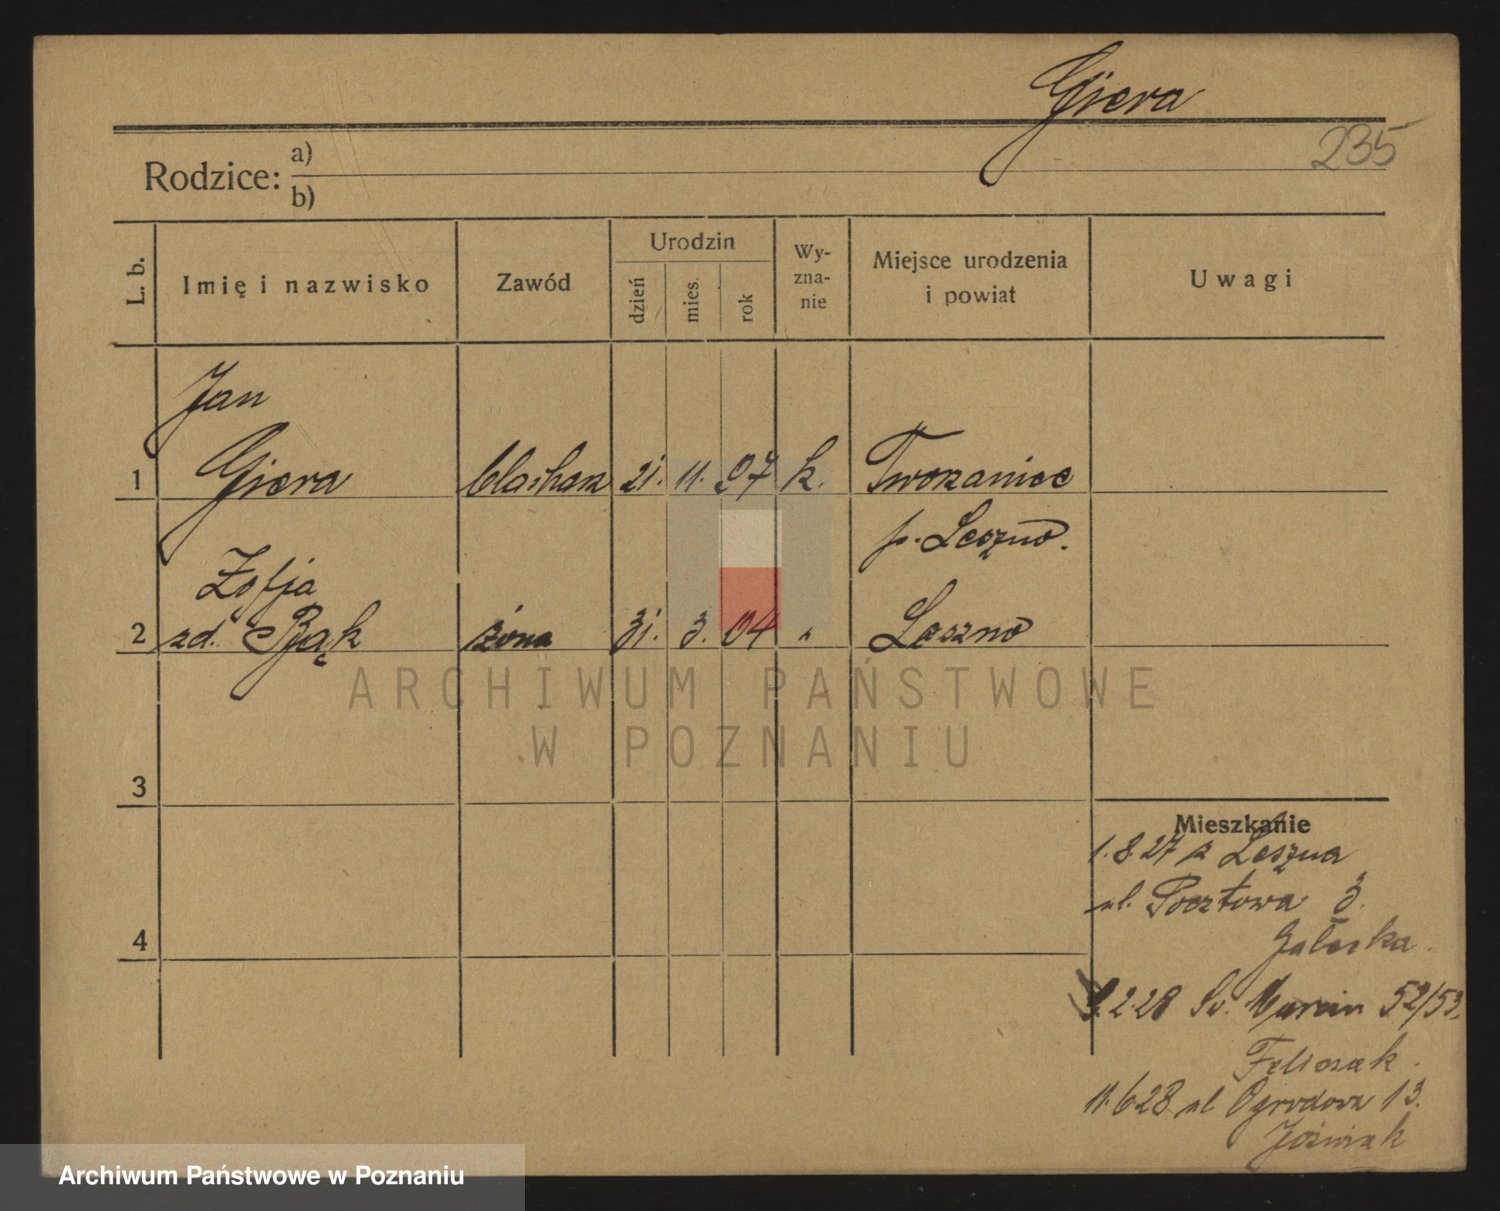 Giera
235
Rodzice: a)
b)
L. b. Imię i nazwisko Zawód Urodzin dzień mies. rok Wy-zna-nie Miejsce urodzenia i powiat Uwagi
Jan
1 Giera blacharz 21. 11. 97 k. Tworzaniec
p. Leszno.
Zofja
2 zd. Bąk żona 31. 3. 04 " Leszno
ARCHIWUM PAŃSTWOWE
W POZNANIU
3
Mieszkanie
1.8.27 z Leszna
ul. Pocztowa 3.
4
Gałecka.
9.2.28 Św. Marcin 52/53.
Feliczak.
11.6.28 ul Ogrodowa 13.
Jóźwiak
Archiwum Państwowe w Poznaniu